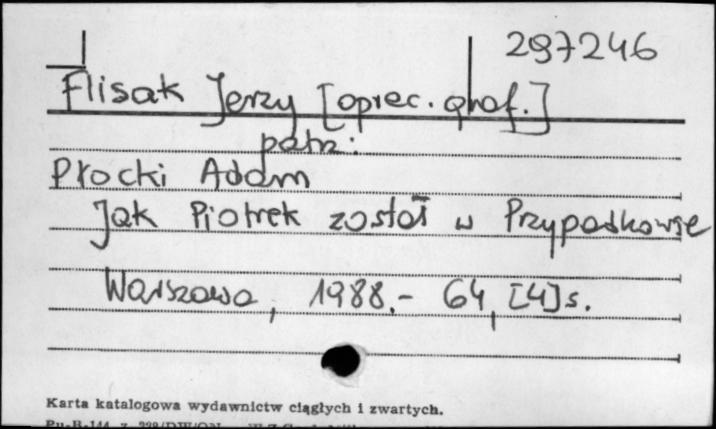 297246
Flisak Jerzy [oprac. graf.]
patrz:
Płocki Adam
Jak Piotrek został w Przypadkowie
Warszawa, 1988.- 64, [4]s.
Karta katalogowa wydawnictw ciągłych i zwartych.
Pu-B-144